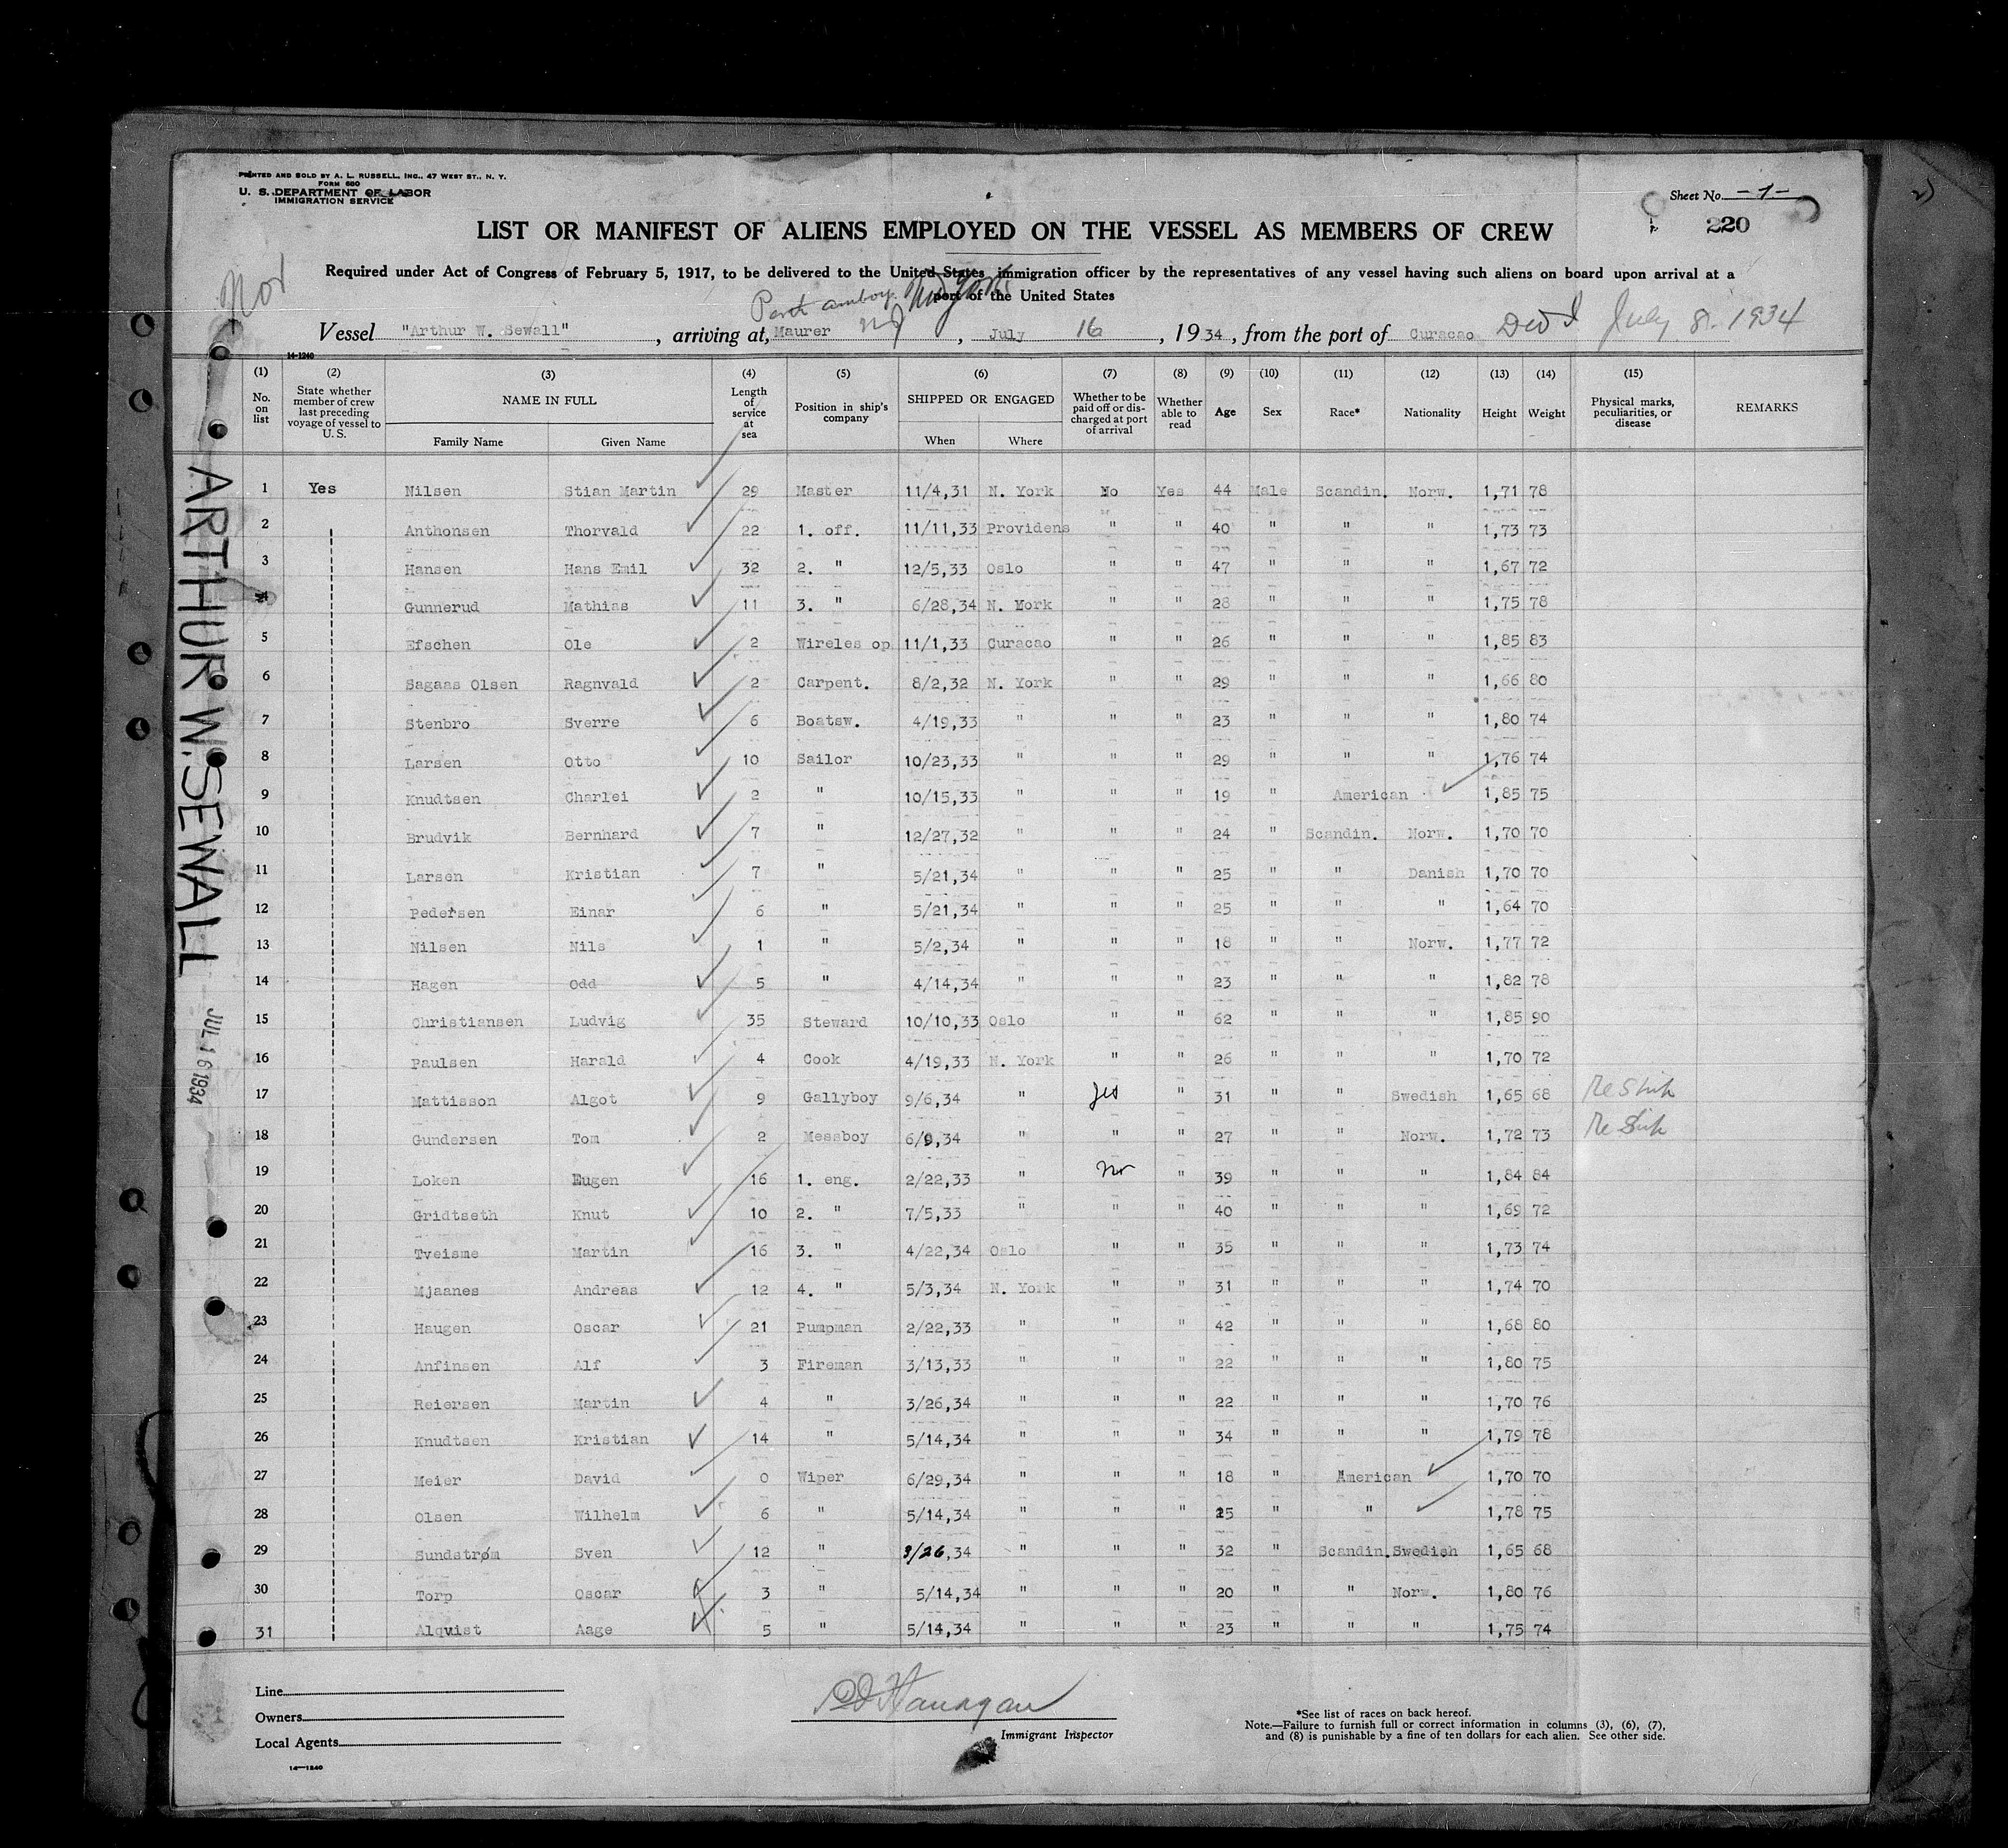 PRINTED AND SOLD BY A. L. RUSSELL, INC., 47 WEST ST., N. Y.
FORM 680
U. S. DEPARTMENT OF LABOR
IMMIGRATION SERVICE
Sheet No. -1-
220
LIST OR MANIFEST OF ALIENS EMPLOYED ON THE VESSEL AS MEMBERS OF CREW
Required under Act of Congress of February 5, 1917, to be delivered to the United States immigration officer by the representatives of any vessel having such aliens on board upon arrival at a
port of the United States
Nor
Perth amboy NJ New York
Vessel "Arthur W. Sewall", arriving at, Maurer, July 16, 1934, from the port of Curacao July 8. 1934
14-1240
(1) No. on list (2) State whether member of crew last preceding voyage of vessel to U. S. (3) NAME IN FULL Family Name Given Name (4) Length of service at sea (5) Position in ship's company (6) SHIPPED OR ENGAGED When Where (7) Whether to be paid off or discharged at port of arrival (8) Whether able to read (9) Age (10) Sex (11) Race* (12) Nationality (13) Height (14) Weight (15) Physical marks, peculiarities, or disease REMARKS
1 Yes Nilsen Stian Martin 29 Master 11/4,31 N. York No Yes 44 Male Scandin. Norw. 1,71 78
2 Anthonsen Thorvald 22 1. off. 11/11,33 Providens " " 40 " " " 1,73 73
3 Hansen Hans Emil 32 2. " 12/5,33 Oslo " " 47 " " " 1,67 72
4 Gunnerud Mathias 11 3. " 6/28,34 N. Mork " " 28 " " " 1,75 78
5 Efschen Ole 2 Wireles op 11/1,33 Curacao " " 26 " " " 1,85 83
6 Sagaas Olsen Ragnvald 2 Carpent. 8/2,32 N. York " " 29 " " " 1,66 80
7 Stenbro Sverre 6 Boatsw. 4/19,33 " " " 23 " " " 1,80 74
8 Larsen Otto 10 Sailor 10/23,33 " " " 29 " " " 1,76 74
9 Knudtsen Charlei 2 " 10/15,33 " " " 19 " American 1,85 75
10 Brudvik Bernhard 7 " 12/27,32 " " " 24 " Scandin. Norw. 1,70 70
11 Larsen Kristian 7 " 5/21,34 " " " 25 " " Danish 1,70 70
12 Pedersen Einar 6 " 5/21,34 " " " 25 " " " 1,64 70
13 Nilsen Nils 1 " 5/2,34 " " " 18 " " Norw. 1,77 72
14 Hagen Odd 5 " 4/14,34 " " " 23 " " " 1,82 78
15 Christiansen Ludvig 35 Steward 10/10,33 Oslo " " 62 " " " 1,85 90
16 Paulsen Harald 4 Cook 4/19,33 N. York " " 26 " " " 1,70 72
17 Mattisson Algot 9 Gallyboy 9/6,34 " Yes " 31 " " Swedish 1,65 68 Re Ship
18 Gundersen Tom 2 Messboy 6/9,34 " " " 27 " " Norw. 1,72 73 Re Ship
19 Loken Eugen 16 1. eng. 2/22,33 " No " 39 " " " 1,84 84
20 Gridtseth Knut 10 2. " 7/5,33 " " " 40 " " " 1,69 72
21 Tveisme Martin 16 3. " 4/22,34 Oslo " " 35 " " " 1,73 74
22 Mjaanes Andreas 12 4. " 5/3,34 N. York " " 31 " " " 1,74 70
23 Haugen Oscar 21 Pumpman 2/22,33 " " " 42 " " " 1,68 80
24 Anfinsen Alf 3 Fireman 3/13,33 " " " 22 " " " 1,80 75
25 Reiersen Martin 4 " 3/26,34 " " " 22 " " " 1,70 76
26 Knudtsen Kristian 14 " 5/14,34 " " " 34 " " " 1,79 78
27 Meier David 0 Wiper 6/29,34 " " " 18 " American 1,70 70
28 Olsen Wilhelm 6 " 5/14,34 " " " 25 " " 1,78 75
29 Sundstrøm Sven 12 " 3/26,34 " " " 32 " Scandin. Swedish 1,65 68
30 Torp Oscar 3 " 5/14,34 " " " 20 " " Norw. 1,80 76
31 Alqvist Aage 5 " 5/14,34 " " " 23 " " " 1,75 74
ARTHUR W. SEWALL
JUL 16 1934
Line
Owners
Local Agents
14-1240
Immigrant Inspector
*See list of races on back hereof.
Note.—Failure to furnish full or correct information in columns (3), (6), (7),
and (8) is punishable by a fine of ten dollars for each alien. See other side.